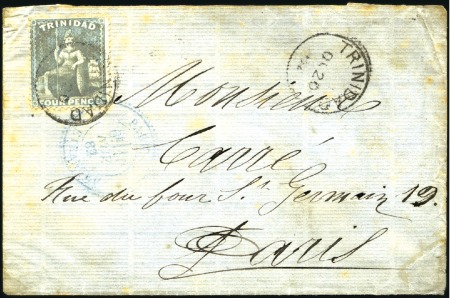 TRINIDAD
FOUR PENCE
TRINIDAD
OC 20
Monsieur
Carré
Rue du four St Germain 19.
Paris